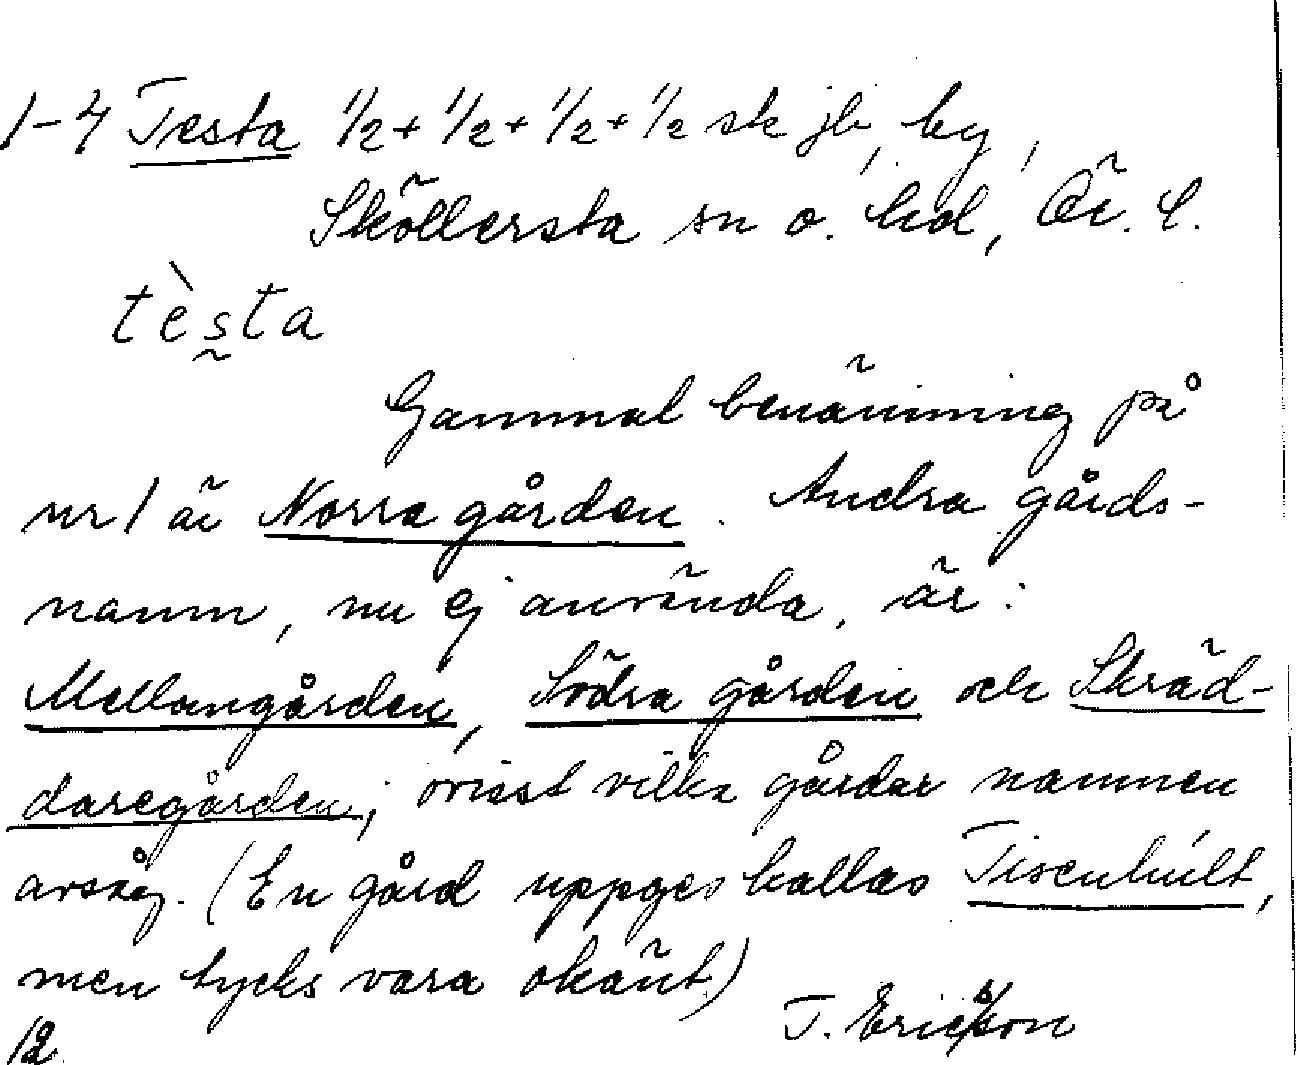 1-4 Testa 1/2+1/2+1/2+1/2 sk jb, by,
Sköllersta sn o. hd, Ör. l.
tèsta
Gammal benämning på
nr 1 är Norra gården. Andra gårds-
namn, nu ej använda, är:
Mellangården, Södra gården och Skräd-
daregården; ovisst vilka gårdar namnen
avsåg. (En gård uppges kallas Tisenhult,
men tycks vara okänt)
T. Ericsson